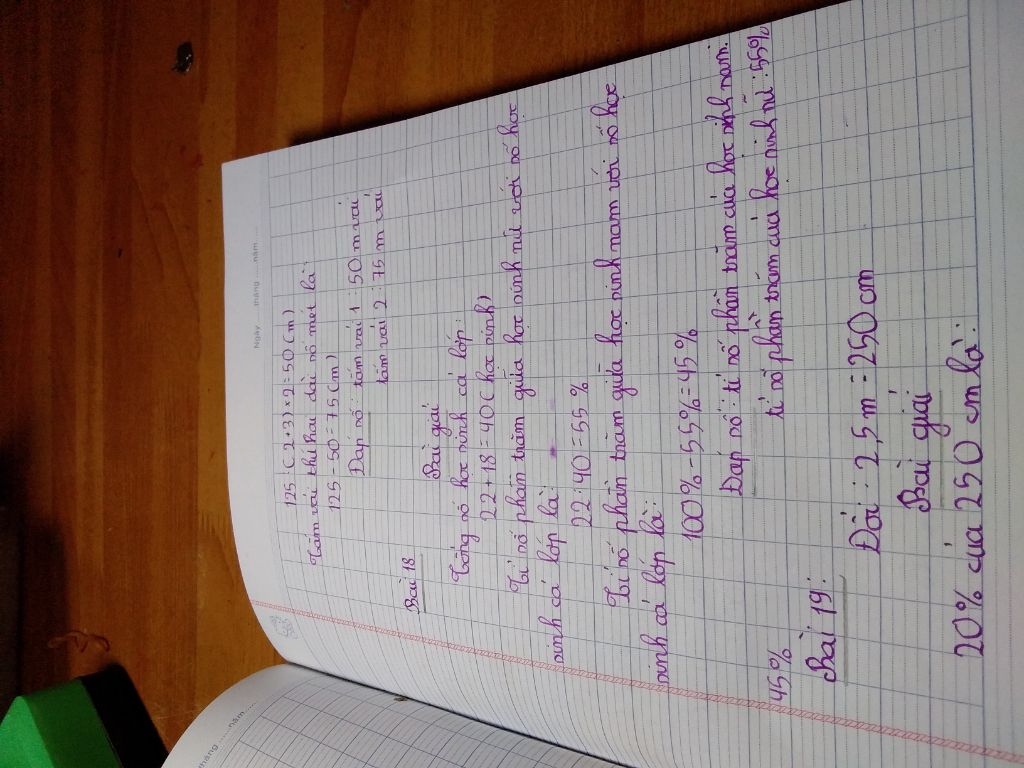 Ngày ..... tháng ..... năm .....
125 : (2+3) × 2 = 50 (m)
Tấm vải thứ hai dài số mét là:
125 - 50 = 75 (m)
Đáp số: tấm vải 1 : 50 m vải
tấm vải 2 : 75 m vải
Bài 18
Bài giải
Tổng số học sinh cả lớp:
22 + 18 = 40 (học sinh)
Tỉ số phần trăm giữa học sinh nữ với số học
sinh cả lớp là:
22 : 40 = 55 %
Tỉ số phần trăm giữa học sinh nam với số học
sinh cả lớp là:
100% - 55% = 45%
Đáp số: tỉ số phần trăm của học sinh nam:
45%
tỉ số phần trăm của học sinh nữ : 55%
Bài 19:
Đổi : 2,5 m = 250 cm
Bài giải
20% của 250 cm là:
tháng ..... năm .....